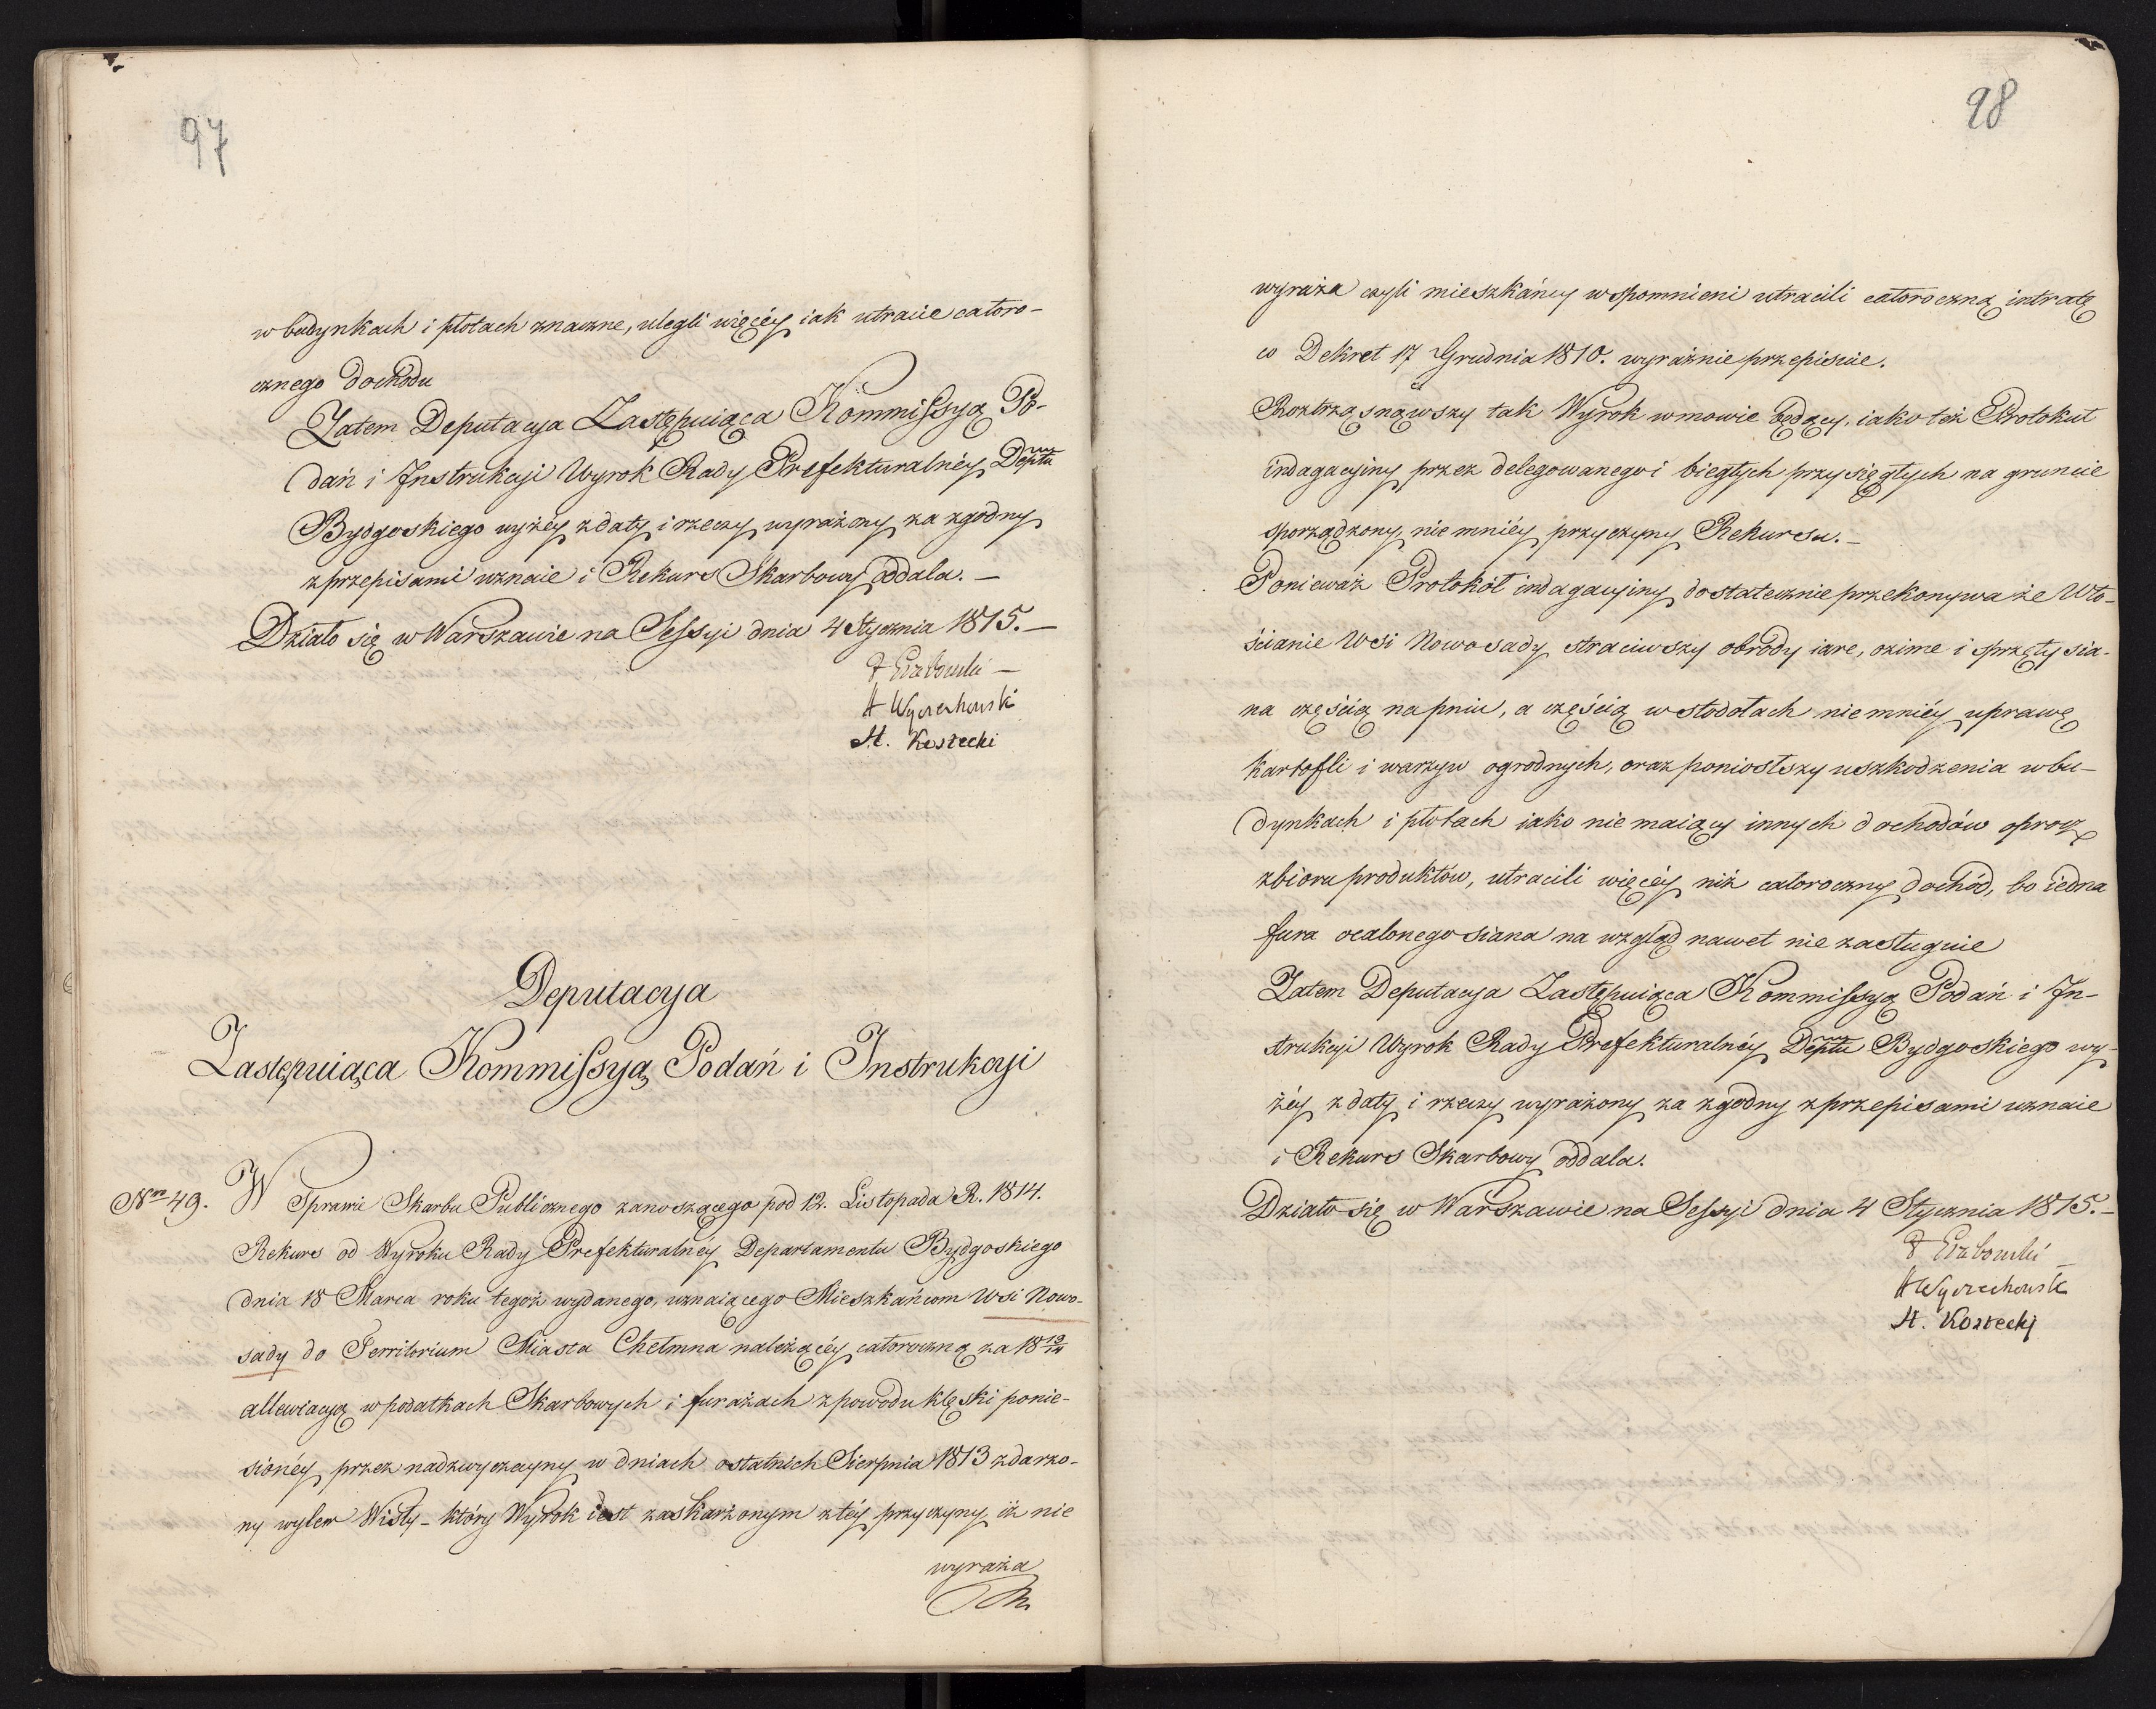 97
w budynkach i płotach znaczne, ulegli więcéy iak utracie całoro-
cznego dochodu
Zatem Deputacya Zastępuiąca Kommissyą Po-
dań i Instrukcyi Wyrok Rady Prefekturalnéy Deptu
Bydgoskiego wyżéy z daty i rzeczy wyrażony za zgodny
z przepisami uznaie i Rekurs Skarbowy oddala. —
Działo się w Warszawie na Sessyi dnia 4 Stycznia 1815. —
A Wyczechowski
St. Koszecki
Deputacya
Zastępuiąca Kommissyą Podań i Instrukcyi
Nro 49. W Sprawie Skarbu Publicznego zanoszącego pod 12. Listopada R. 1814.
Rekurs od Wyroku Rady Prefekturalnéy Departamentu Bydgoskiego
dnia 18 Marca roku tegoż wydanego, uznaiącego Mieszkańcom Wsi Nowo-
sady do Territorium Miasta Chełmna należącéy całoroczną za 18 13/14
allewiacyą w podatkach Skarbowych i furażach z powodu klęski ponie-
sionéy przez nadzwyczayny w dniach ostatnich Sierpnia 1813 zdarzo-
ny wylew Wisły – który Wyrok iest zaskarżonym z téy przyczyny iż nie
wyraża
98
wyraża czyli mieszkańcy wspomnieni utracili całoroczną intratę
co Dekret 17 Grudnia 1810. wyraźnie przepisuie.
Roztrząsnąwszy tak Wyrok w mowie będący, iako też Protokuł
indagacyiny przez delegowanego i biegłych przysięgłych na gruncie
sporządzony, nie mniéy przyczyny Rekursu. —
Ponieważ Protokół indagacyiny dostatecznie przekonywa że Wło-
ścianie Wsi Nowosady straciwszy obrody iare, ozime i sprzęty sia-
na częścią na pniu, a częścią w stodołach nie mniéy uprawę
kartofli i warzyw ogrodnych, oraz poniosłszy uszkodzenia w bu-
dynkach i płotach iako nie maiący innych dochodów oprocz
zbioru produktów, utracili więcéy niż całoroczny dochód, bo iedna
fura ocalonego siana na wzgląd nawet nie zasługuie
Zatem Deputacya Zastępuiąca Kommissyą Podań i In-
strukcyi Wyrok Rady Prefekturalnéy Deptu Bydgoskiego wy-
żéy z daty i rzeczy wyrażony za zgodny z przepisami uznaie
i Rekurs Skarbowy oddala.
Działo się w Warszawie na Sessyi dnia 4 Stycznia 1815. –
A Wyczechowski
St. Koszecki